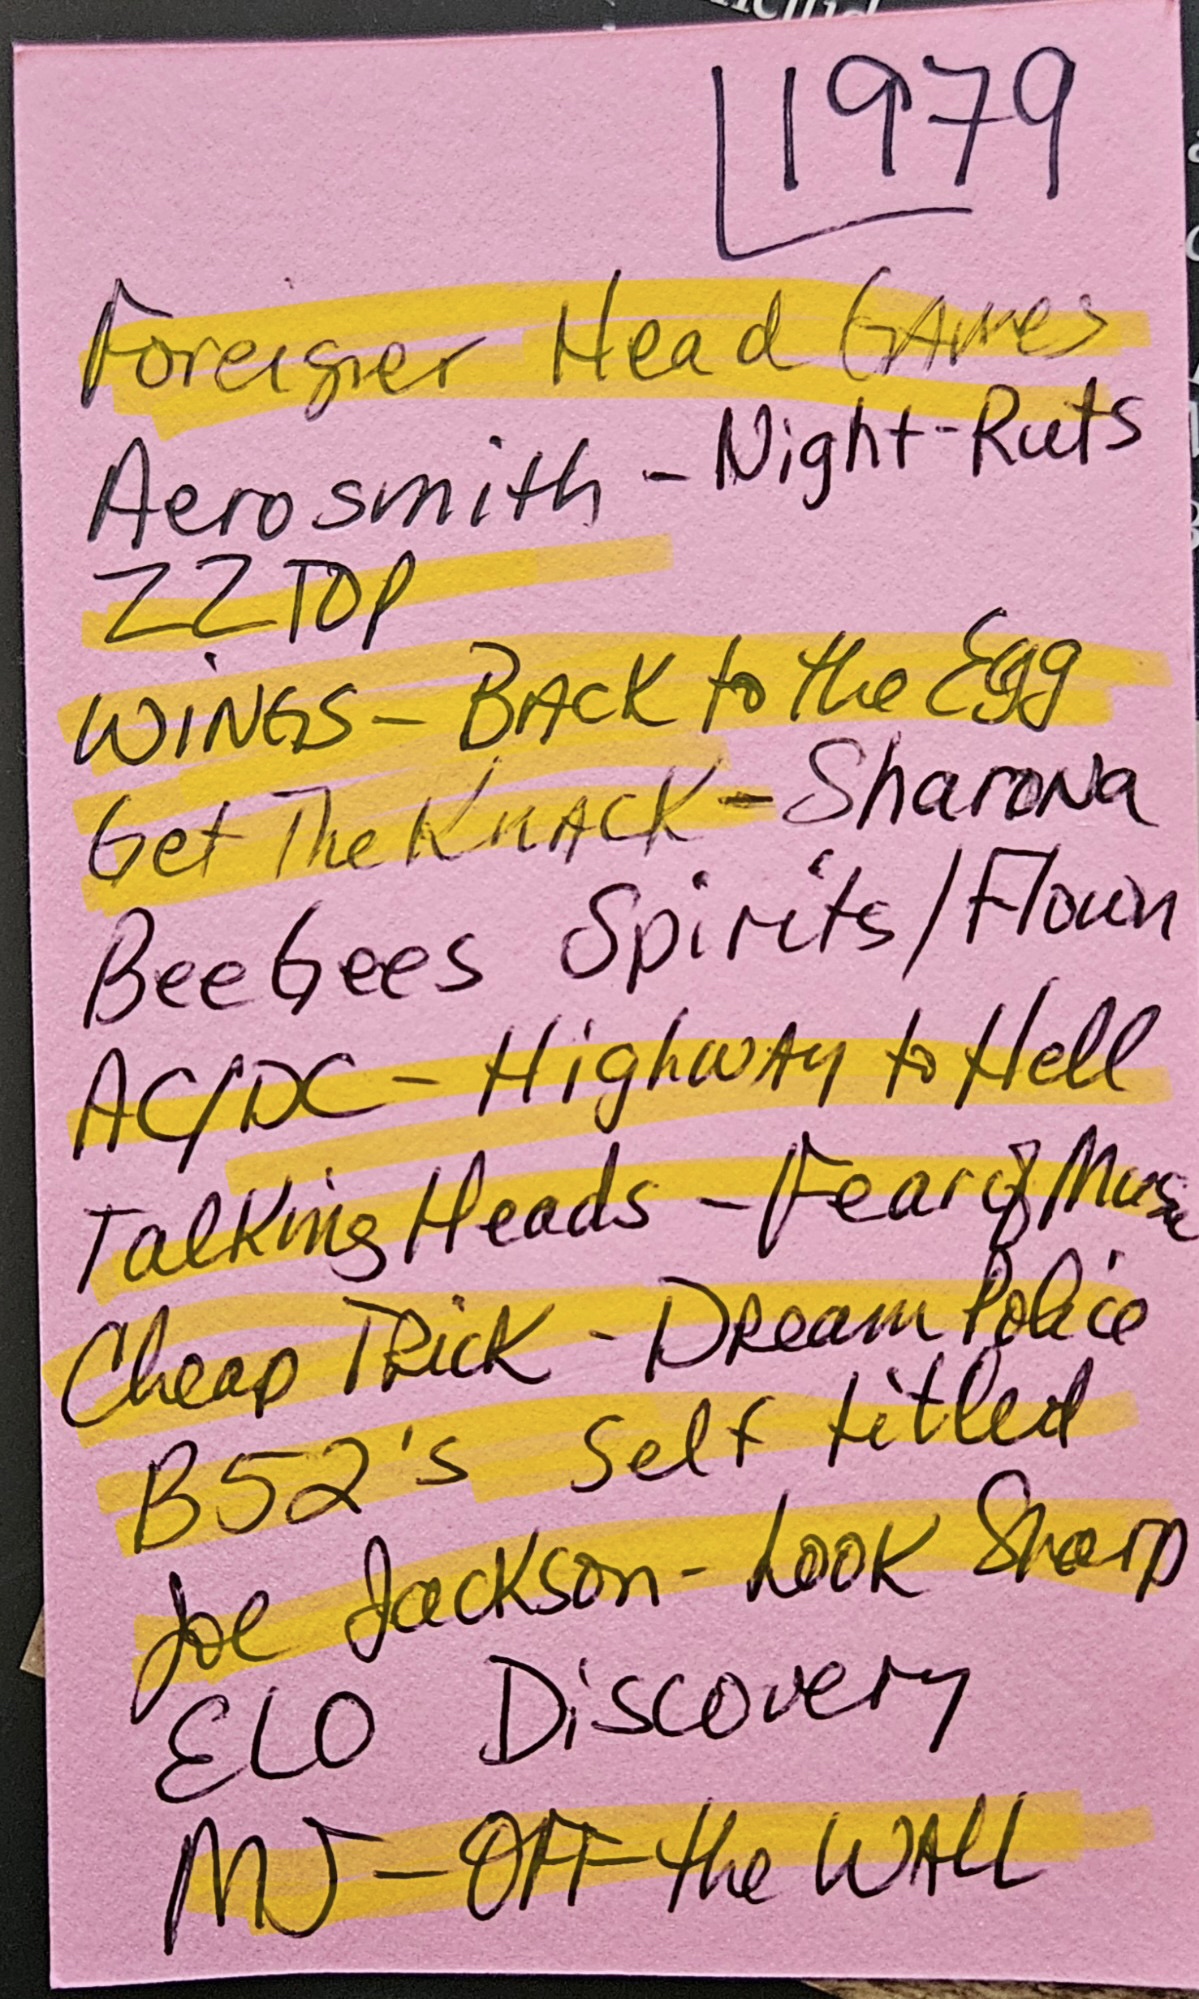 1979
Foreigner Head Games
Aerosmith - Night-Ruts
ZZ TOP
WINGS - BACK to the Egg
Get The KNACK - Sharona
BeeGees Spirits/Flown
AC/DC - Highway to Hell
Talking Heads - Fear of Music
Cheap Trick - Dream Police
B52's Self titled
Joe Jackson - Look Sharp
ELO Discovery
MJ - OFF the WALL